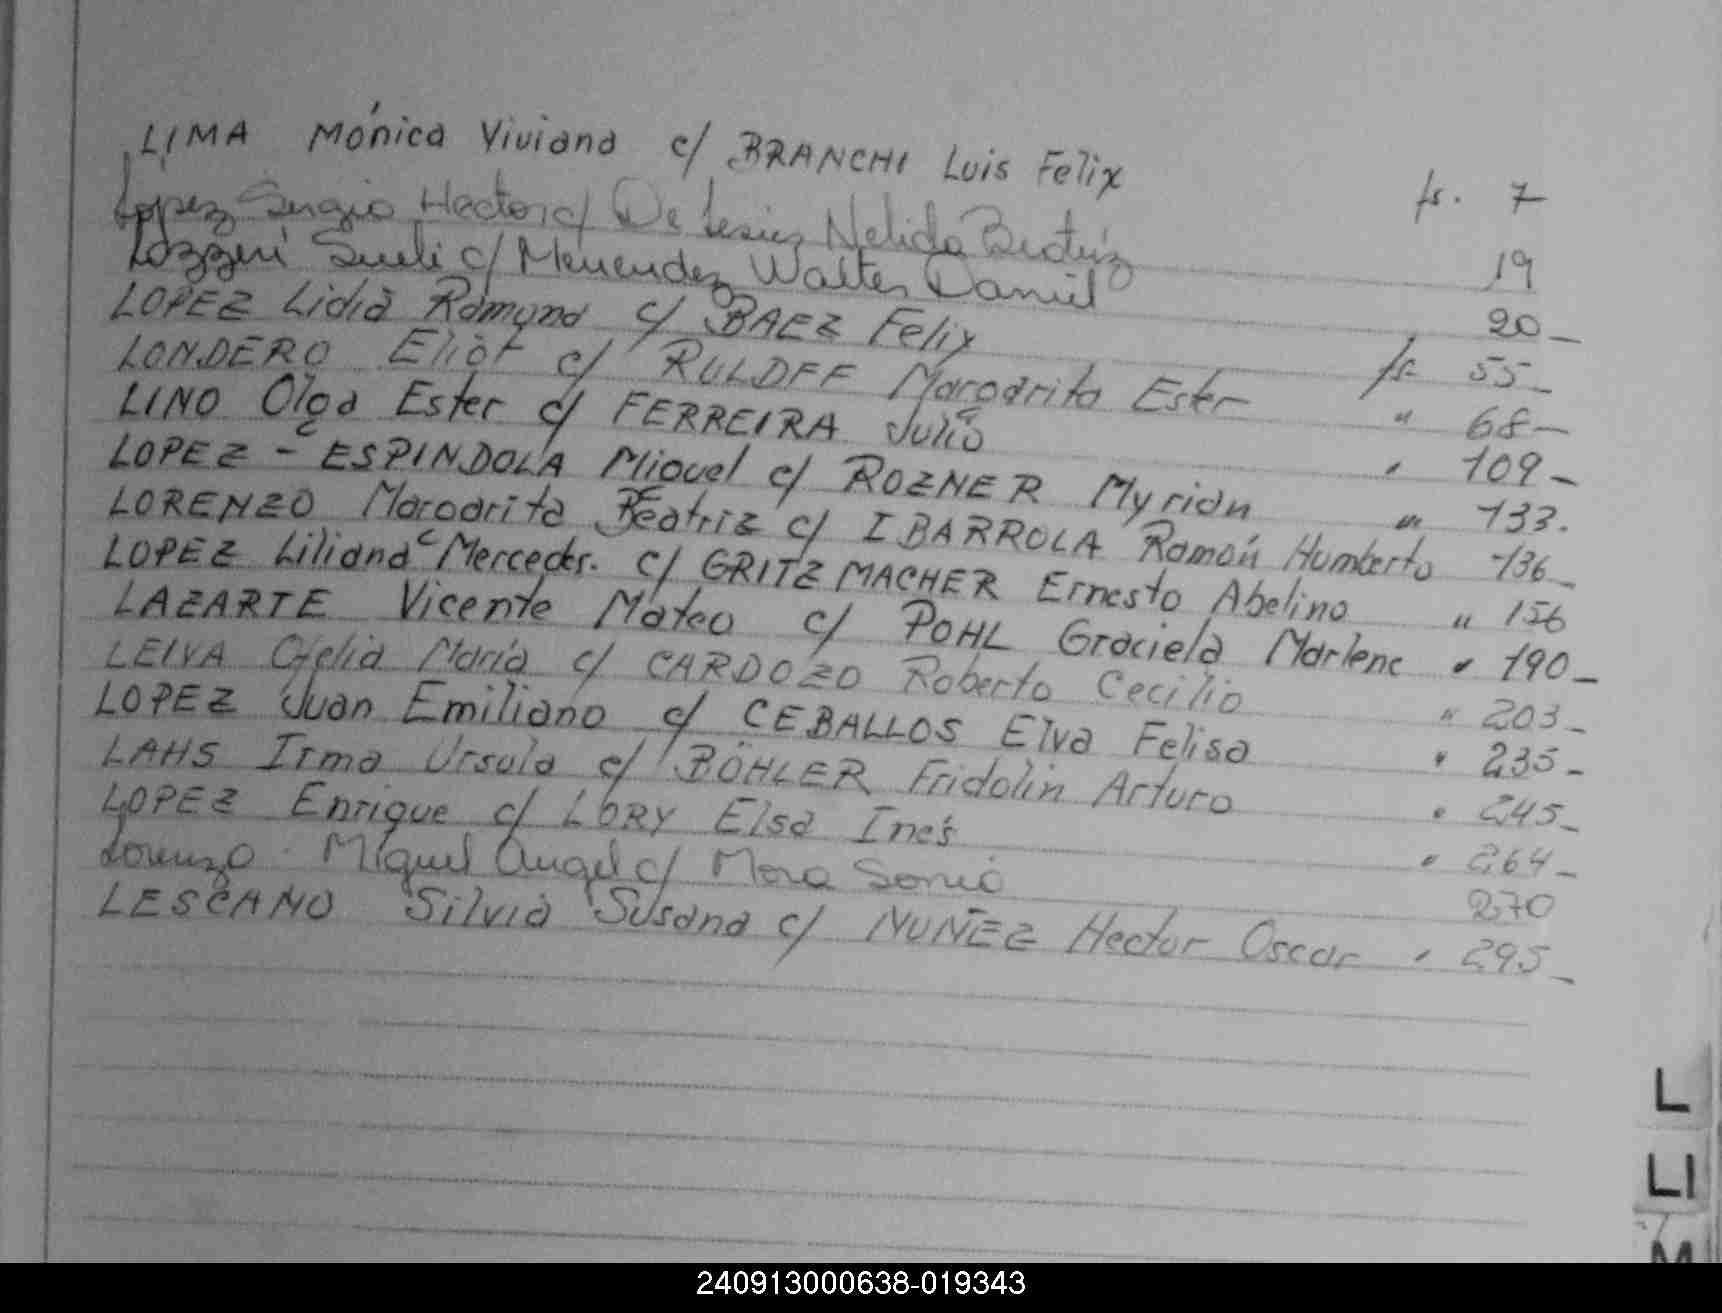 LIMA Mónica Viviana c/ BRANCHI Luis Felix fs. 7
Lopez Sergio Hector c/ De Nelida Beatriz 19
Lozzeri Sueli c/ Menendez Walter Daniel 20-
LOPEZ Lidia Ramona c/ BAEZ Felix fs 55-
LONDERO Eliot c/ RULOFF Margarita Ester " 68-
LINO Olga Ester c/ FERREIRA Julio " 109-
LOPEZ - ESPINDOLA Miguel c/ ROZNER Myrian " 133.
LORENZO Margarita Beatriz c/ IBARROLA Ramón Humberto 136-
LOPEZ Liliana Mercedes. c/ GRITZMACHER Ernesto Abelino " 156
LAZARTE Vicente Mateo c/ POHL Graciela Marlene " 190-
LEIVA Ofelia María c/ CARDOZO Roberto Cecilio " 203-
LOPEZ Juan Emiliano c/ CEBALLOS Elva Felisa " 235-
LAHS Irma Ursula c/ BÖHLER Fridolin Arturo " 245-
LOPEZ Enrique c/ LORY Elsa Inés " 264-
Lorenzo Miguel Angel c/ Mora Sonia 270
LESCANO Silvia Susana c/ NUÑEZ Hector Oscar " 295-
L
LI
M
240913000638-019343